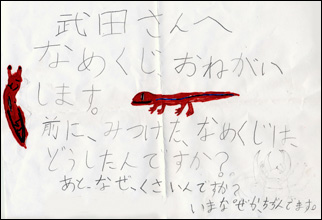 武田さんへ
なめくじ おねがい
します。
前に、みつけた、なめくじは、
どうしたんですか?
あと、なぜ、くさいんですか?
いまなぜか、